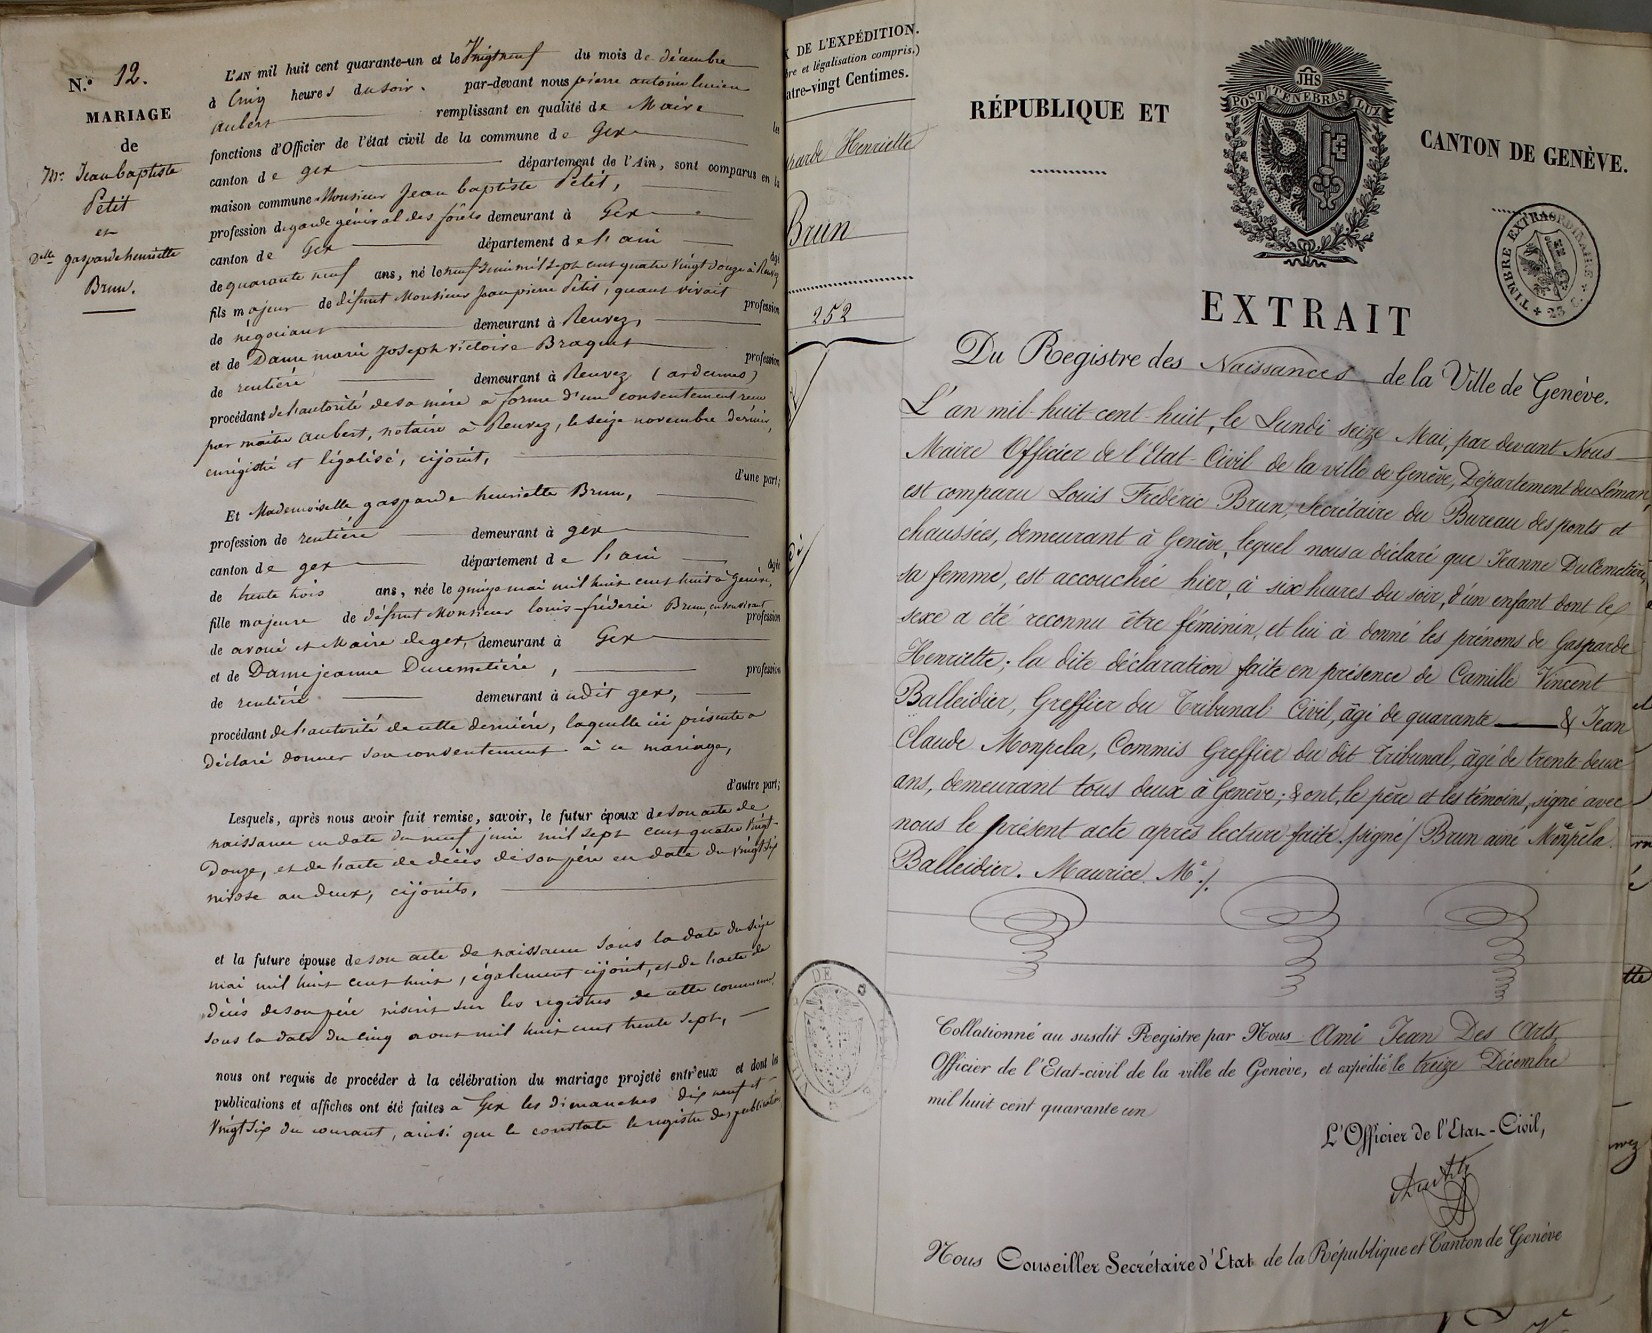 N.° 12.
MARIAGE
de
Mr. Jean baptiste
Petit
et
Delle gasparde henriette
Brun.
L'AN mil huit cent quarante-un et le Vingt neuf du mois de décembre
à Cinq heures du soir. par-devant nous pierre antoine lucien
Aubert remplissant en qualité de Maire les
fonctions d'Officier de l'état civil de la commune de Gex
canton de gex département de l'Ain, sont comparus en la
maison commune Monsieur Jean baptiste Petit,
profession de garde général des forêts demeurant à Gex
canton de Gex département de l'ain âgé
de quarante neuf ans, né le neuf juin mil sept cent quatre vingt douze à Renwez
fils majeur de défunt Monsieur Jean pierre Petit, quant vivait profession
de négociant demeurant à Renwez,
et de Dame marie Joseph victoire Braquet profession
de rentière demeurant à Renwez (ardennes)
procédant de l'autorité de sa mère à forme d'un consentement reçu
par maître aubert, notaire à Renwez, le seize novembre dernier,
enrégistré et légalisé, cijoint,
d'une part;
Et Mademoiselle gasparde henriette Brun,
profession de rentière demeurant à gex
canton de gex département de l'ain âgée
de trente trois ans, née le quinze mai mil huit cent huit à Genève,
fille majeure de défunt Monsieur louis-fréderic Brun, en son vivant profession
de avoué et Maire de gex, demeurant à Gex
et de Dame jeanne Ducemetière, profession
de rentière demeurant à udit gex,
procédant de l'autorité de cette dernière, laquelle ici présente a
déclaré donner son consentement à ce mariage,
d'autre part;
Lesquels, après nous avoir fait remise, savoir, le futur époux de son acte de
naissance en date du neuf juin mil sept cent quatre vingt-
Douze, et de l'acte de décès de son père en date du vingt six
nivose an deux, cijoints,
et la future épouse de son acte de naissance sous la date du seize
mai mil huit cent huit, également cijoint, et de l'acte de
décès de son père inscrit sur les registres de cette commune,
sous la date du cinq aout mil huit cent trente sept,
nous ont requis de procéder à la célébration du mariage projeté entr'eux et dont les
publications et affiches ont été faites à Gex les dimanches dix neuf et
vingt six du courant, ainsi que le constate le registre des publications
X DE L'EXPÉDITION.
bre et légalisation compris.)
atre-vingt Centimes.
parde Henriette
Brun
252
RÉPUBLIQUE ET
JHS
POST TENEBRAS LUX
CANTON DE GENÈVE.
TIMBRE EXTRAORDINAIRE
23 C.
EXTRAIT
Du Registre des Naissances de la Ville de Genève.
L'an mil-huit cent-huit, le Lundi seize Mai, par devant Nous
Maire Officier de l'Etat-Civil de la ville de Genève, Département du Léman,
est comparu Louis Frédéric Brun, Secrétaire du Bureau des ponts et
chaussées, demeurant à Genève, lequel nous a déclaré que Jeanne DuCemetière,
sa femme, est accouchée hier, à six heures du soir, d'un enfant dont le
sexe a été reconnu être féminin, et lui à donné les prénoms de Gasparde
Henriette; la dite déclaration faite en présence de Camille Vincent
Balleidier, Greffier du Tribunal Civil, âgé de quarante & Jean
Claude Monpela, Commis Greffier du dit Tribunal, âgé de trente deux
ans, demeurant tous deux à Genève; & ont, le père et les témoins, signé avec
nous le présent acte après lecture faite. /signé/ Brun ainé Monpéla.
Balleidier. Maurice. Me./.
Collationné au susdit Registre par Nous Ami Jean Des Arts,
Officier de l'Etat-civil de la ville de Genève, et expédié le treize Décembre
mil huit cent quarante un
L'Officier de l'Etat-Civil,
Nous Conseiller Secrétaire d'Etat de la République et Canton de Genève